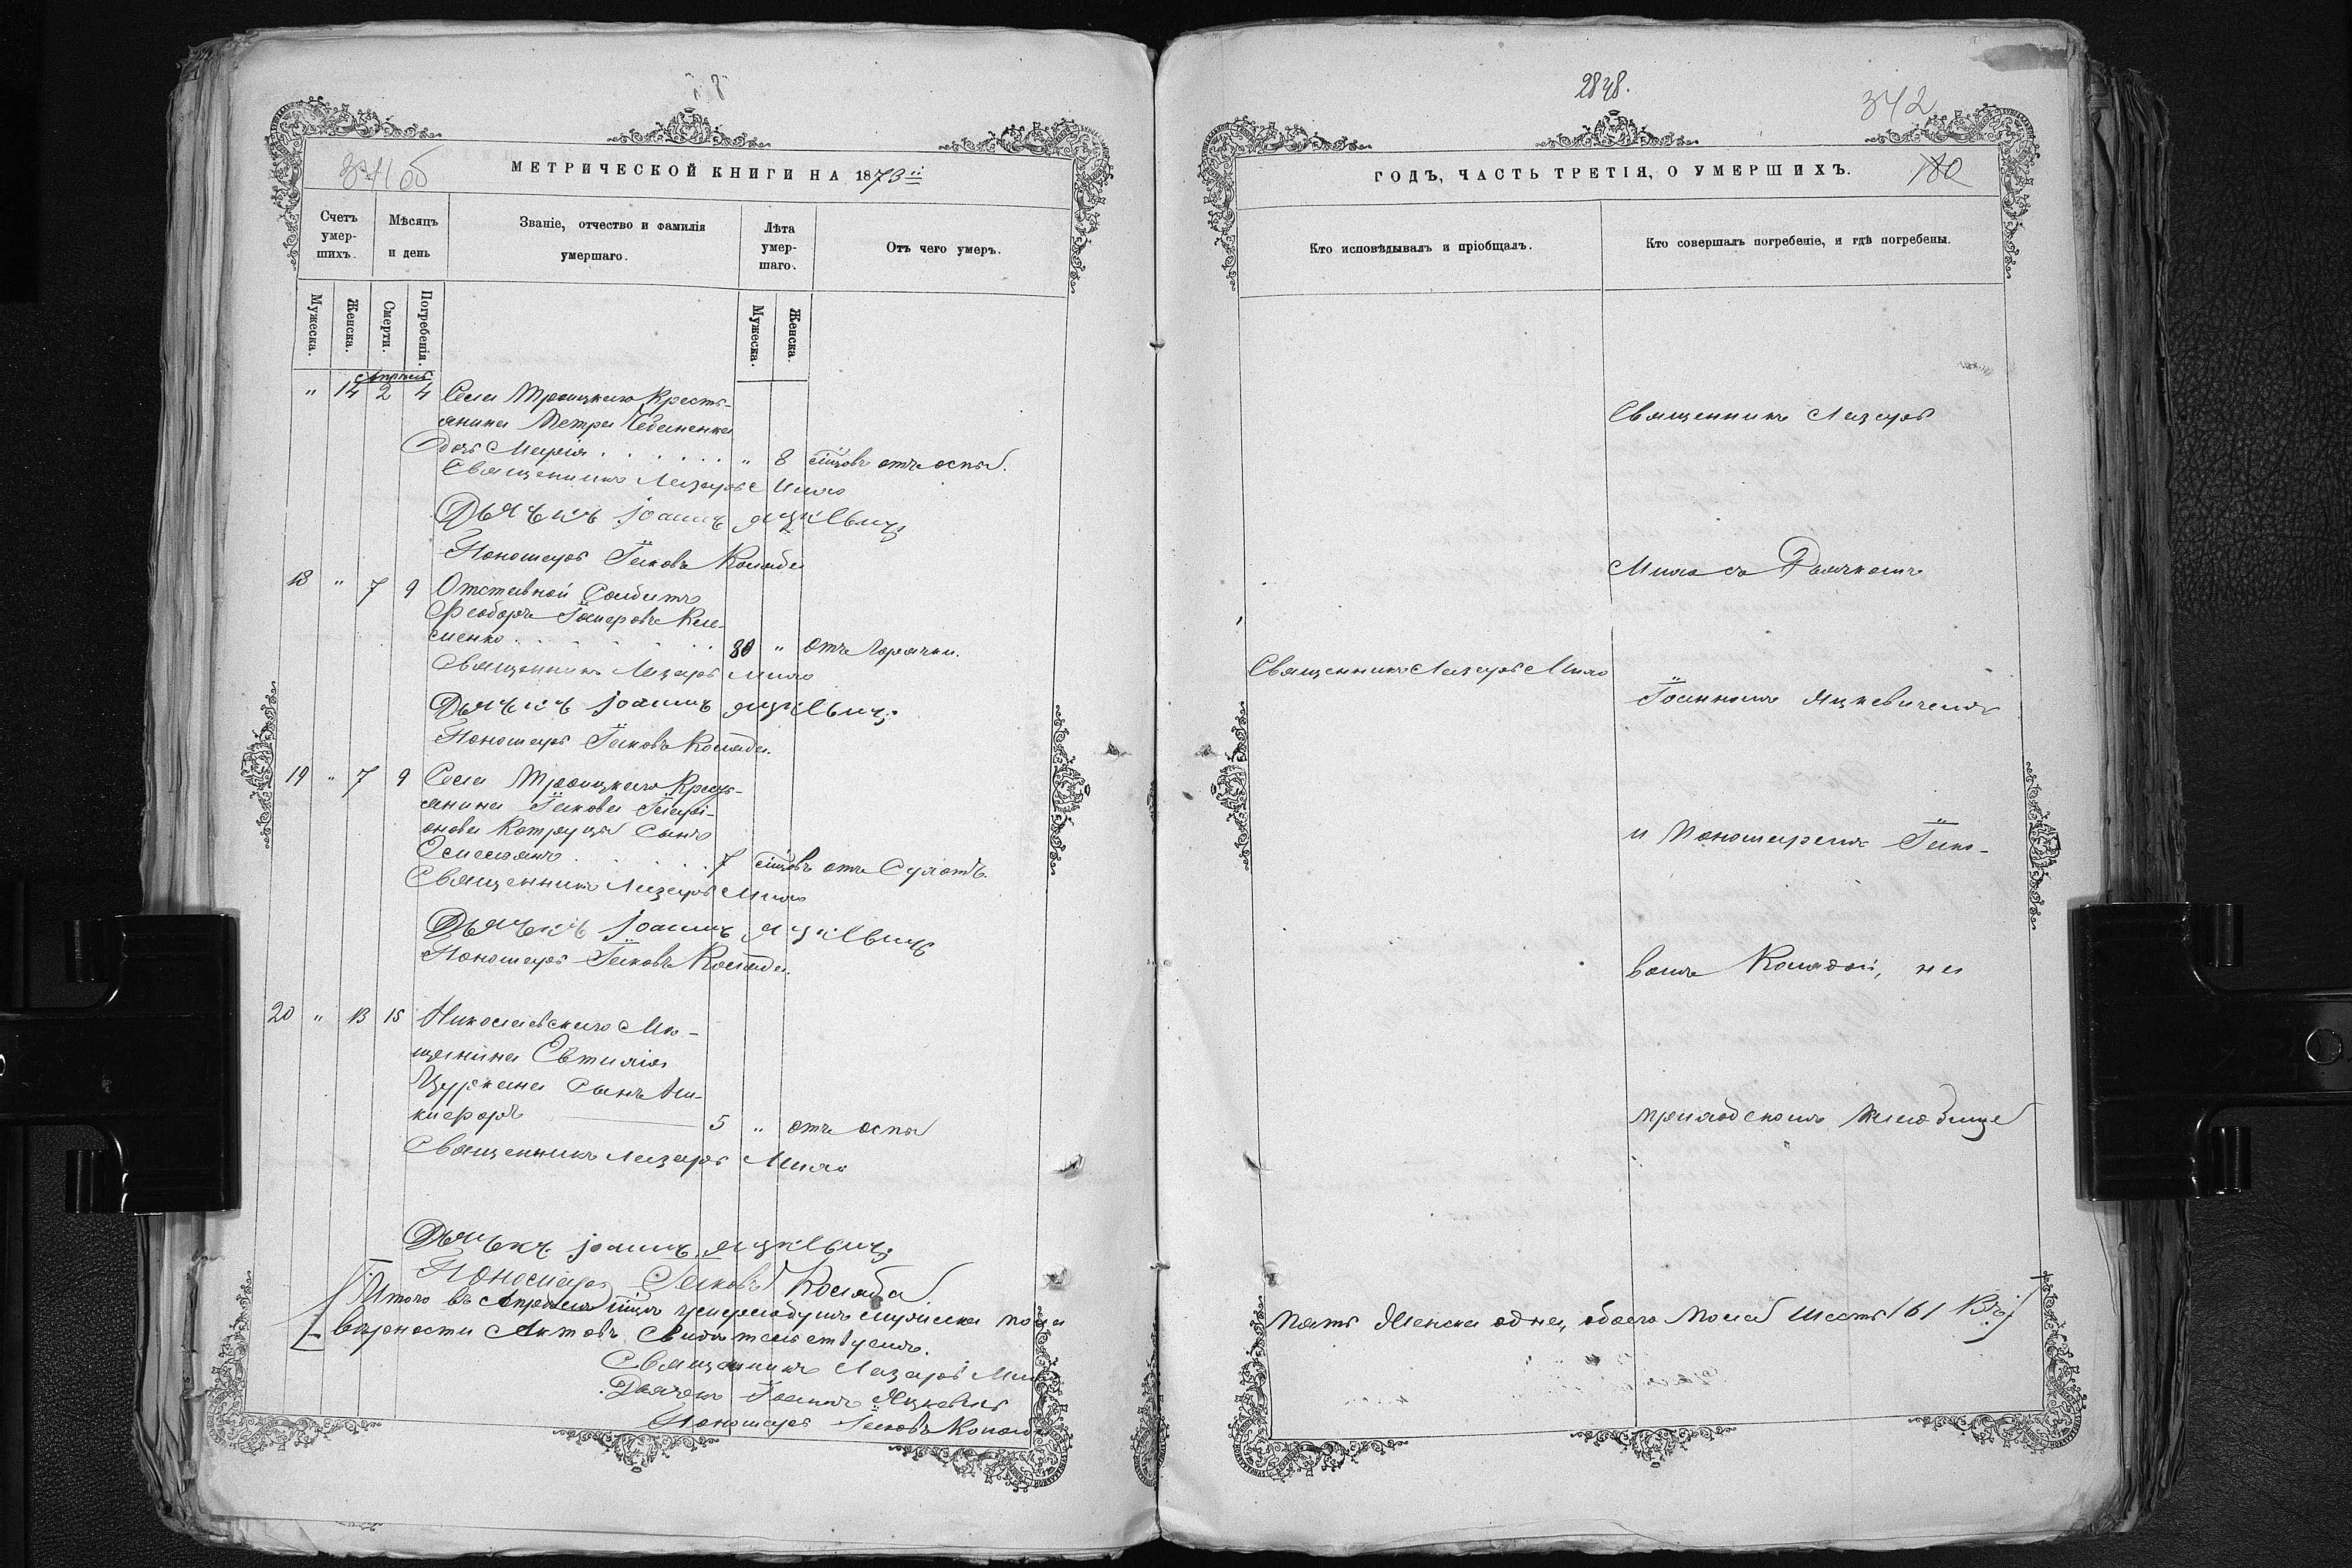 341 об
МЕТРИЧЕСКОЙ КНИГИ НА 1873й
Счетъ умершихъ.
Мѣсяцъ и день
Званіе, отчество и фамилія умершаго.
Лѣта умершаго.
Отъ чего умеръ.
Мужеска.
Женска.
Смерти.
Погребенія.
Мужеска.
Женска.
Апрѣль
" 14 2 4 Села Троицкаго Кресть-
янина Петра Чебаненка
дочь Марія . . . . . . " 8 мѣсяцовъ отъ оспы.
Священникъ Лазарь Мила
Дьячекъ Іоаннъ Яцкевичъ
Пономарь Іаковъ Колада
18 " 7 9 Отставной Солдатъ
Феодоръ
сменко . . . . . . 80 " отъ горячки.
Священникъ Лазарь Мила
Дьячекъ Іоаннъ Яцкевичъ
Пономарь Іаковъ Колада.
19 " 7 9 Села Троицкаго Кресть-
янина Іакова Иларі-
онова Катруцы Сынъ
7 мѣсяцовъ отъ Сухотъ.
Священникъ Лазарь Мила
Дьячекъ Іоаннъ Яцкевичъ
Пономарь Іаковъ Колада.
20 " 13 15 Николаевскаго Мѣ-
щанина Евтихія
Цуркана Сынъ Ни-
кифоръ 5 " отъ оспы
Священникъ Лазарь Мила
Дьячекъ Іоаннъ Яцкевичъ
Пономарь Іаковъ Колада
Итого въ Апрѣлѣ мѣсяцѣ умерло душъ мужеска пола
вѣрности Актовъ Свидѣтельствуемъ.
Священникъ Лазарь Мила
Дьячекъ Іоаннъ Яцкевичъ
Пономарь Іаковъ Колада
2848.
342
ГОДЪ, ЧАСТЬ ТРЕТІЯ, О УМЕРШИХЪ.
180
Кто исповѣдывалъ и пріобщалъ.
Кто совершалъ погребеніе, и гдѣ погребены.
Священникъ Лазарь
Мила съ Дьячкомъ
Священникъ Лазарь Мила
Іоанномъ Яцкевичемъ
и Пономаремъ Іако-
вомъ Коладой, на
приходскомъ кладбищѣ
пять Женска одна, обоего пола шесть /6/ Въ